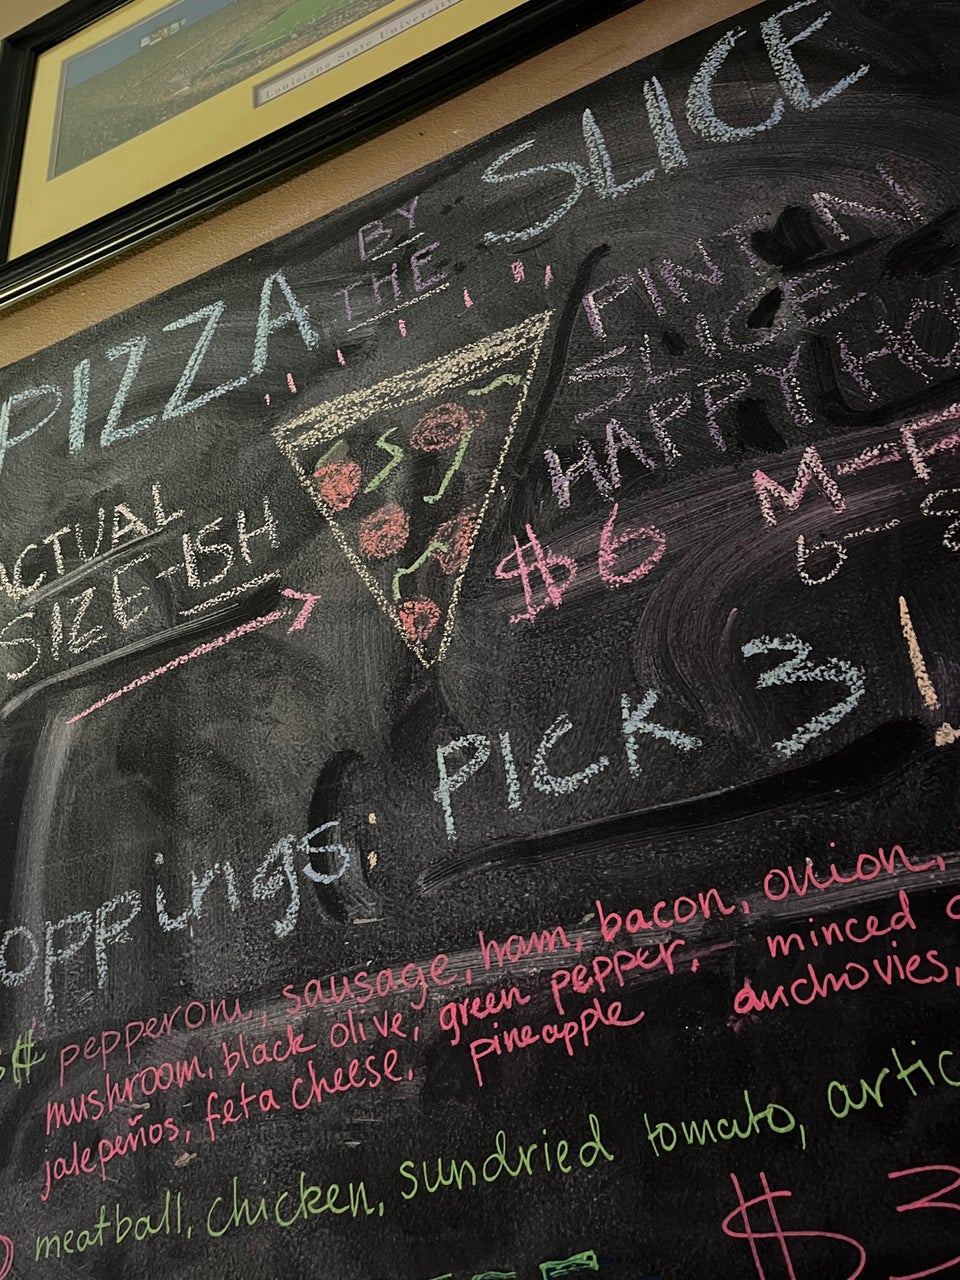 Louisiana State University
PIZZA BY THE SLICE
PINT N
SLICE
HAPPY HO
$6 M-F
6-8
ACTUAL
SIZE-ISH
PICK 3!
oppings:
pepperoni, sausage, ham, bacon, onion,
mushroom, black olive, green pepper, minced
jalepeños, feta cheese, pineapple anchovies,
meatball, chicken, sundried tomato, artic
$3